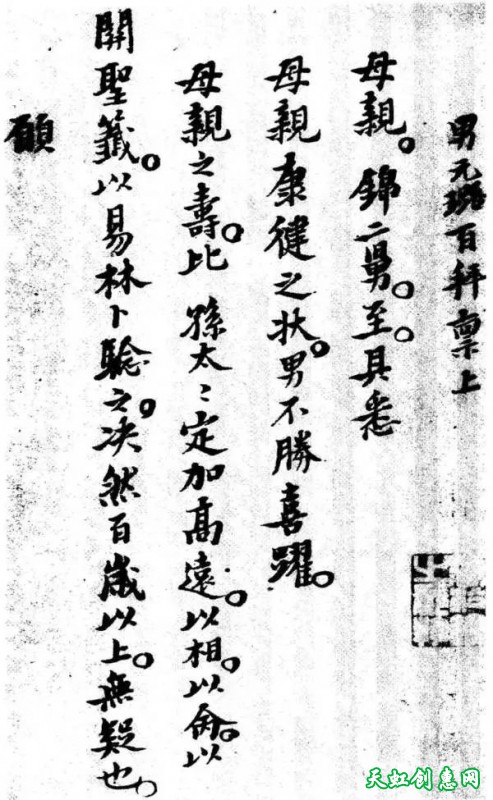 男元璐百拜稟上
母親。錦二舅。至。具悉
母親康健之狀。男不勝喜躍。
母親之壽。比孫太〻定加高遠。以相。以命。以
開聖籤。以易林卜驗之。决然百歲以上。無疑也。
願
天虹创意网